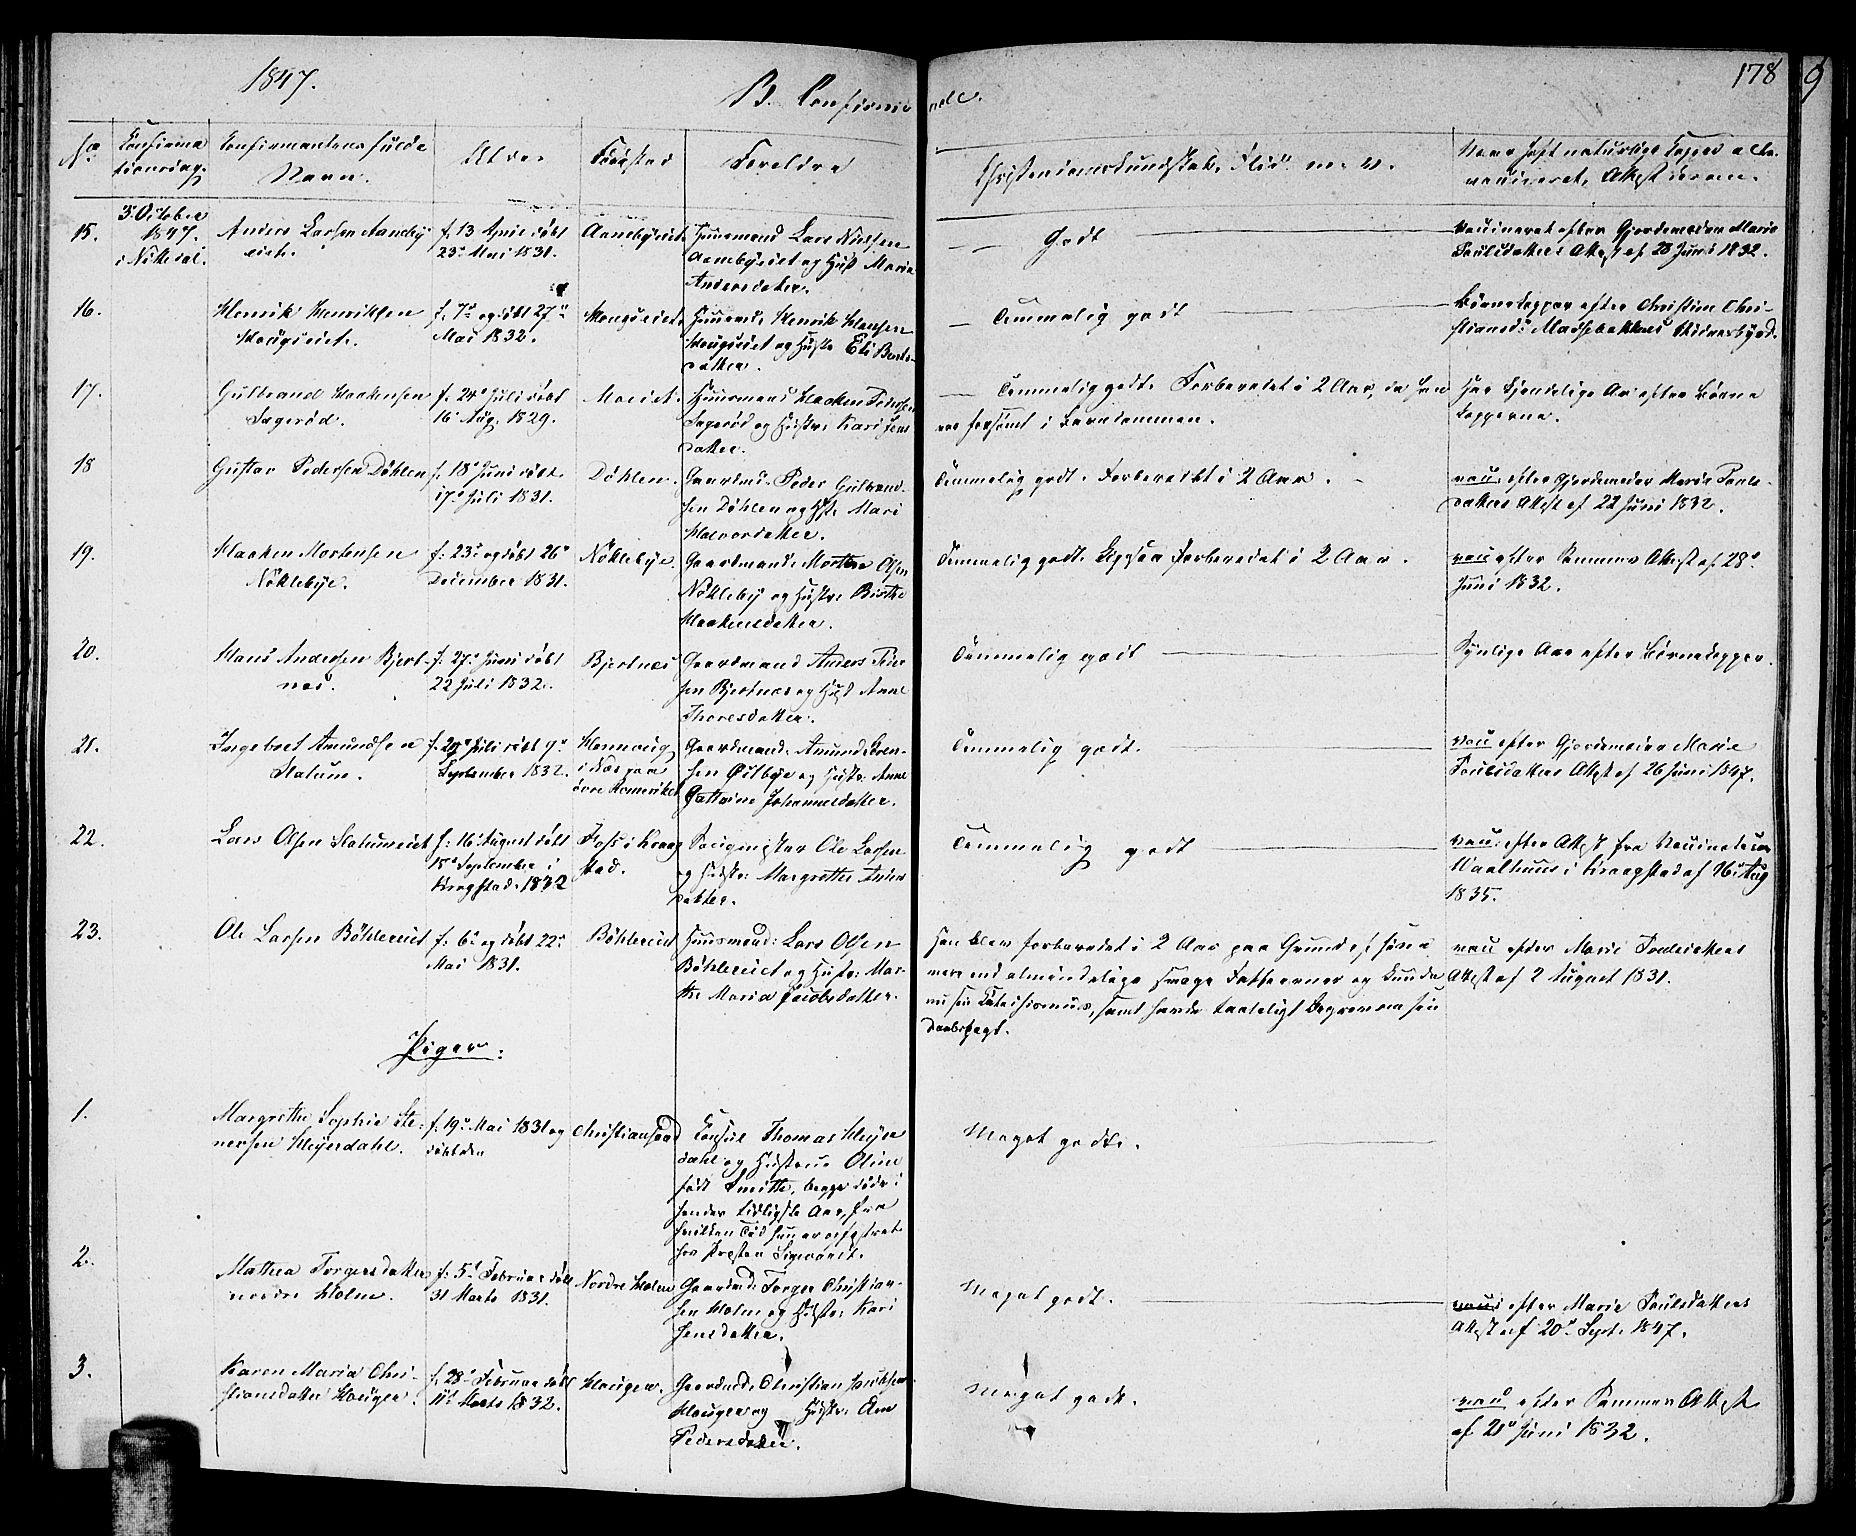 1847.
B. Confirmerede.
178
9
No
Confirmationsdag.
Confirmantens fulde Navn.
Alder
Fødested
Foreldre
Christendomskundskab, Flid m. v.
Naar havt naturlige Kopper eller vaccineret, Attest derom.
15.
3 October 1847. i Nittedal.
Anders Larsen Aaneby eiet.
f. 13 April døbt
23de Mai 1831.
Aanebyeiet
Huusmand Lars Nielsen
Aanebyeiet og Hust Maria
Andersdatter.
Godt
Vaccineret efter Gjordemoder Marie
Poulsdatters Attest af 28 Juni 1832.
16.
Henrik Henriksen
Haugseiet.
f. 7de og døbt 27de
Mai 1832.
Haugseiet.
Huusmd. Henrik Hansen
Haugseiet og Hustr Eli Bents-
datter.
Temmelig godt
Børnekopper efter Christine Chri-
stiansd:
17.
Gulbrand Haakensen
Sagerød.
f. 24de Juli døbt
16 Aug. 1829.
Moeiet.
Huusmand Haaken Pedersen
Sagerød og Hustr. Kari Jens
datter.
Temmelig godt. Forberedet i 2 Aar, da han
var forsømt i Barndommen.
Har kjendelige Ar efter Børne
kopperne.
18
Gustav Pedersen Døhlen
f. 18de Juni døbt
17de Juli 1831.
Døhlen.
Gaardmd. Peder Gulbrand-
sen Døhlen og Hst. Mari
Halvorsdatter.
Temmelig godt. Forberedt i 2 Aar.
vacc efter Gjordemoder Marie Pouls-
datters Attest af 22 Juni 1832.
19.
Haaken Mortensen
Nøklebye.
f. 23de og døbt 26de
December 1831.
Nøklebye.
Gaardmand. Morten Olsen
Nøkleby og Hustr. Birthe
Haakensdatter.
Temmelig godt. Ogsaa forberedet i 2 Aar.
vacc efter Sammes Attest af 28de
Juni 1832.
20.
Hans Andersen Bjert-
næs.
f. 27de Juni døbt
22 Juli 1832.
Bjertnæs
Gaardmand Anders
sen Bjertnæs og Hust Anne
Thoresdatter.
Temmelig godt
Synlige Aar efter Børnekopper.
21.
Ingebret Amundsen
Slatum.
f. 29de Juli døbt 9de
September 1832.
i Næs paa
øvre Romeriket
Gaardmand. Amund Even-
sen Østbye og Hustr. Anne
Cathrine Johannesdatter.
Temmelig godt.
vacc efter Gjordemoder Marie
Poulsdatters Attest af 26 Juni 1847.
22.
Lars Olsen Slatumeiet
f. 16 August døbt
15de September i
Kragstad 1832
Foss i Kraag
stad.
Ole Larsen
og Hustr. Margrethe Anders
datter.
Temmelig godt
vacc. efter Attest fra Vaccinateur
Vaalhuus i Kraagstad af 26 Aug
1835.
23.
Ole Larsen Bøhlereiet
f. 6te og døbt 22de
Mai 1831.
Bøhlereiet
Huusmand: Lars Olsen
Bøhlereiet og Hustr: Mar-
the Maria Jacobsdatter.
Han blev forberedet i 2 Aar paa Grund af sine
mere end almindelige svage Fatteevner og kunde
nu sin Catechismus, samt havde taaleligt Begreb om sin
Daabspagt.
vacc efter Marie Poulsdatters
Attest af 2 August 1831.
Piger:
1.
Margrethe Sophie Ste-
nersen Heyerdahl.
f. 19de Mai 1831 og
døbt den
Christiansand
Consul Thomas Heyer
dahl og Hustrue Oline
født Smith, begge døde i
hendes tidligste Aar, fra
hvilken Tid hun er opfostret
hos Præsten Sigwardt.
Meget godt.
2.
Mathea Torgersdatter
nordre Holm.
f. 5te Februar døbt
31 Marts 1831.
Nordre Holm
Gaardmd: Torger Christian-
sen Holm og Hustr: Kari
Jensdatter.
Meget godt.
vacc: efter Marie Poulsdatters
Attest af 20de Sept. 1847.
3.
Karen Maria Chri-
stiansdatter Haugen
f. 28de Februar døbt
11te Marts 1832.
Haugen.
Gaardmd: Christian Jacobsen
Haugen og Hustr: Ane
Pedersdatter.
Meget godt.
vacc efter Sammes Attest
af 21de Juni 1832.